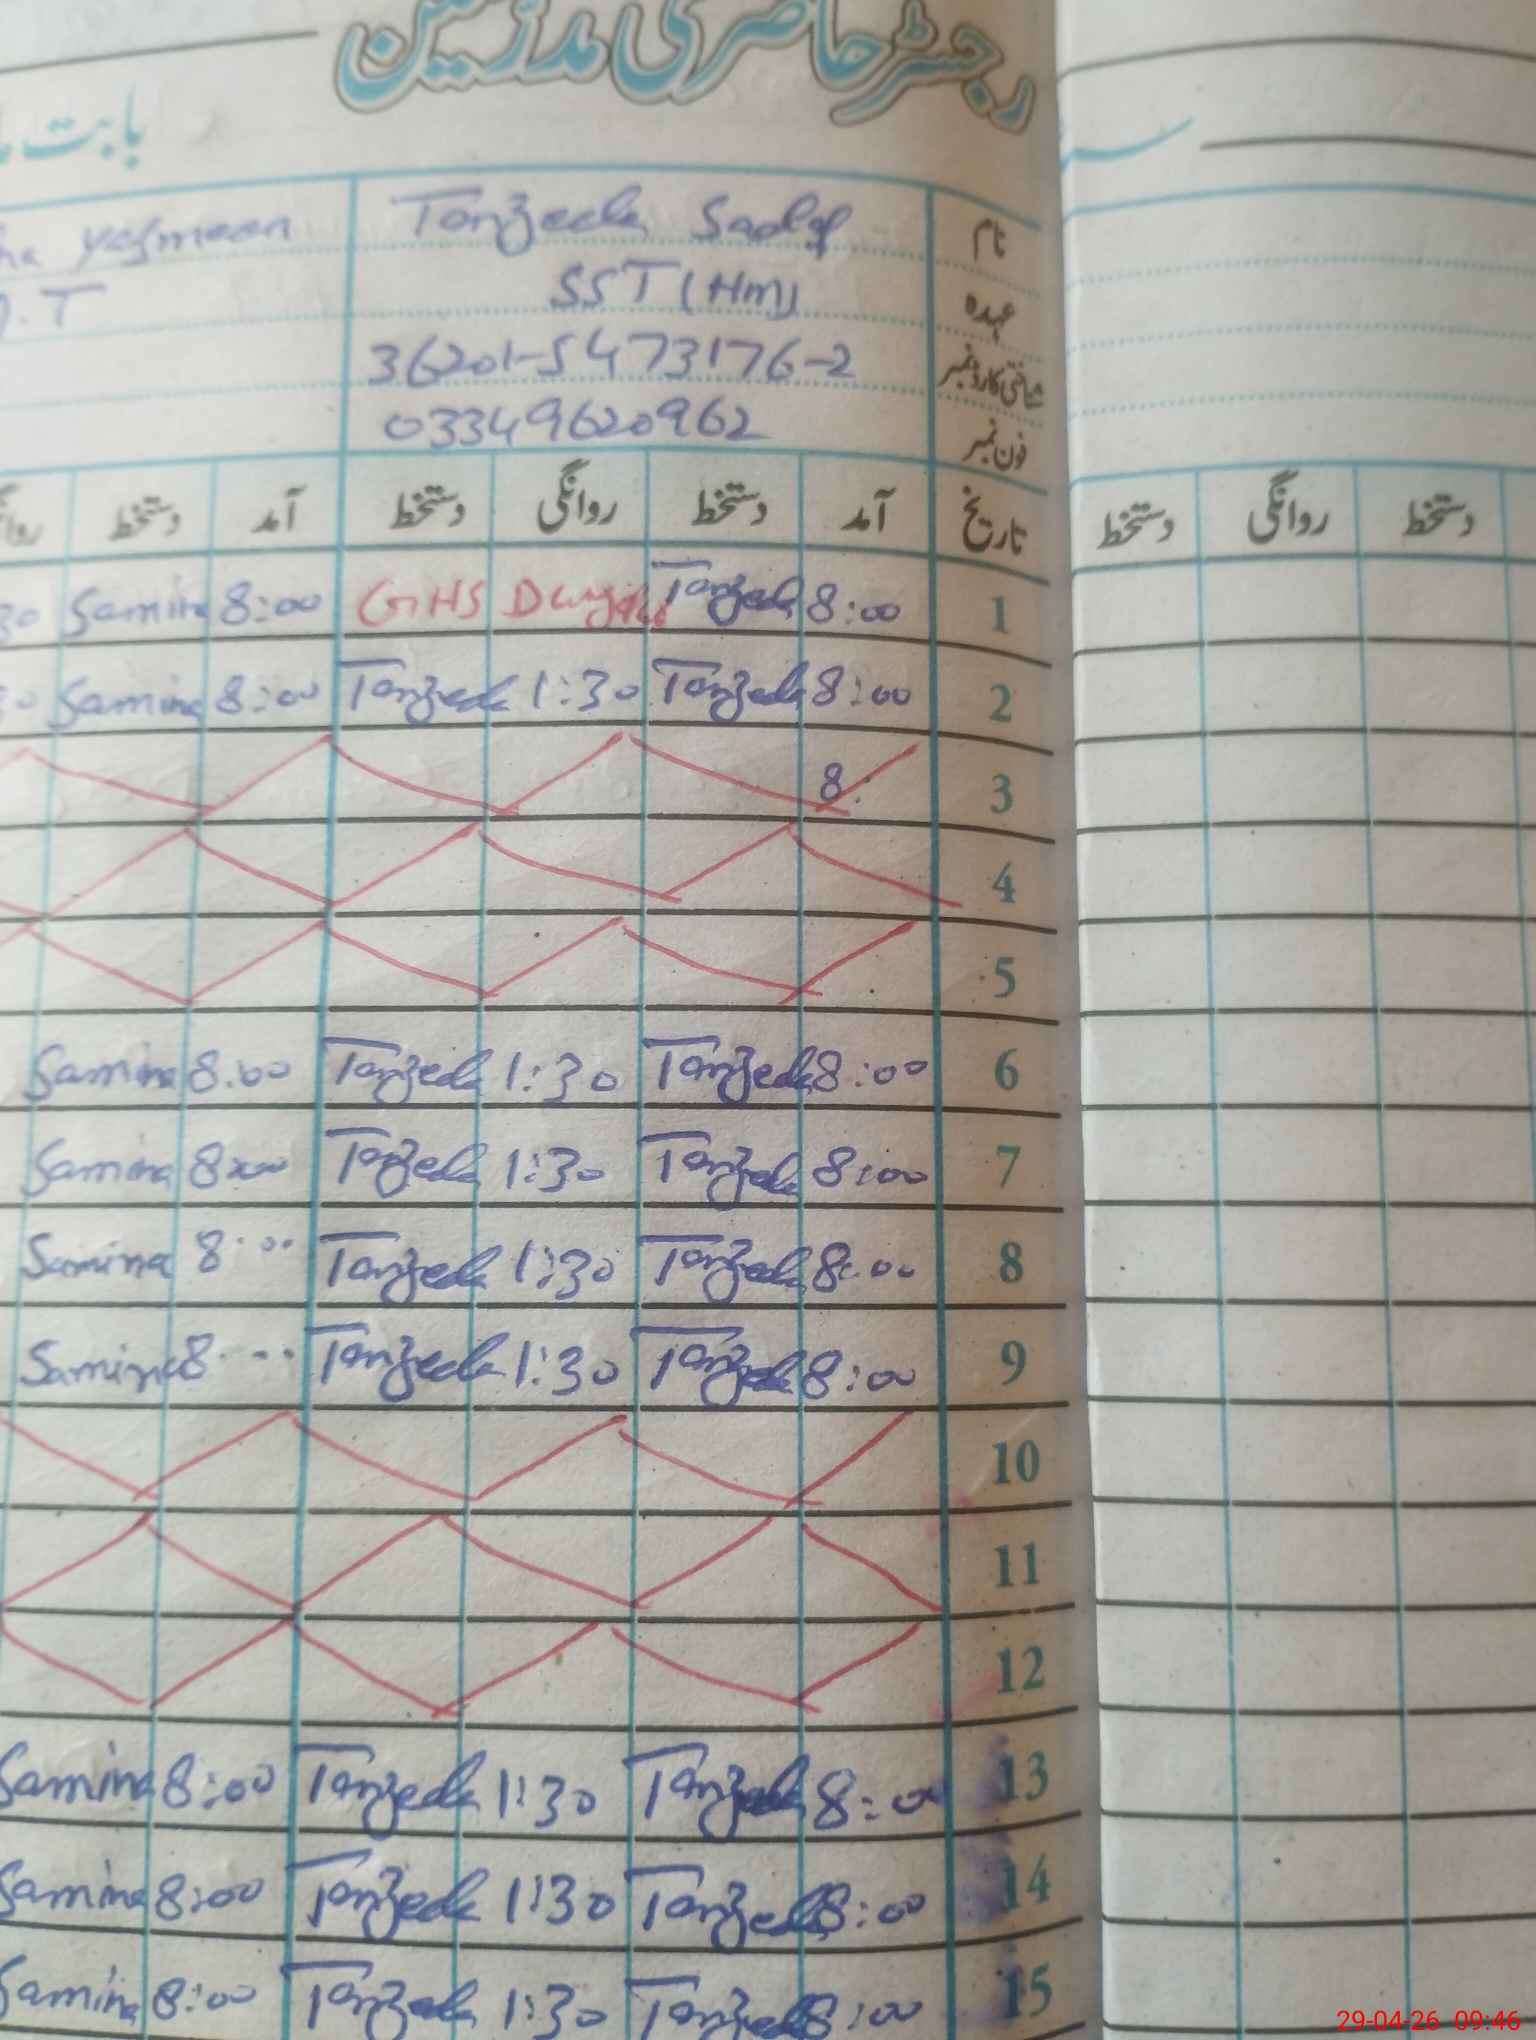 رجسٹر حاضری مدرسین
بابت
نام Tanzeela Sadaf yasmeen
عہدہ SST (Hm) .T
شناختی کارڈ نمبر 36201-5473176-2
فون نمبر 03349620962
تاریخ آمد دستخط روانگی دستخط آمد دستخط
دستخط روانگی دستخط
1 8:00 Tanzeela GHS 8:00 Samina 30
2 8:00 Tanzeela 1:30 Tanzeela 8:00 Samina 30
3 8:
4
5
6 8:00 Tanzeela 1:30 Tanzeela 8:00 Samina
7 8:00 Tanzeela 1:30 Tanzeela 8:00 Samina
8 8:00 Tanzeela 1:30 Tanzeela 8:00 Samina
9 8:00 Tanzeela 1:30 Tanzeela 8:00 Samina
10
11
12
13 8:00 Tanzeela 1:30 Tanzeela 8:00 Samina
14 8:00 Tanzeela 1:30 Tanzeela 8:00 Samina
15 8:00 Tanzeela 1:30 Tanzeela 8:00 Samina
29-04-26 09:46